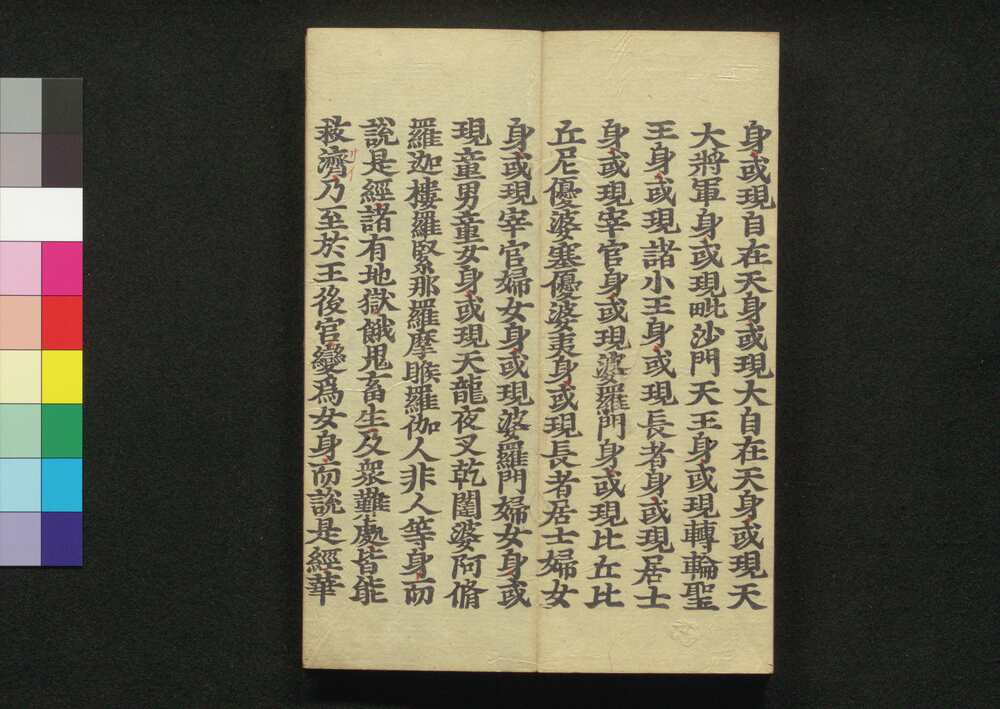 身或現自在天身或現大自在天身或現天
大將軍身或現毗沙門天王身或現轉輪聖
王身或現諸小王身或現長者身或現居士
身或現宰官身或現婆羅門身或現比丘比
丘尼優婆塞優婆夷身或現長者居士婦女
身或現宰官婦女身或現婆羅門婦女身或
現童男童女身或現天龍夜叉乾闥婆阿脩
羅迦樓羅緊那羅摩睺羅伽人非人等身而
說是經諸有地獄餓鬼畜生及衆難處皆能
救濟乃至於王後宮變爲女身而說是經華